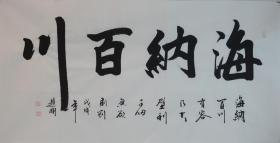 海納百川
海納
百川
有容
乃大
壁利
千仞
無欲
則剛
戊戌
年